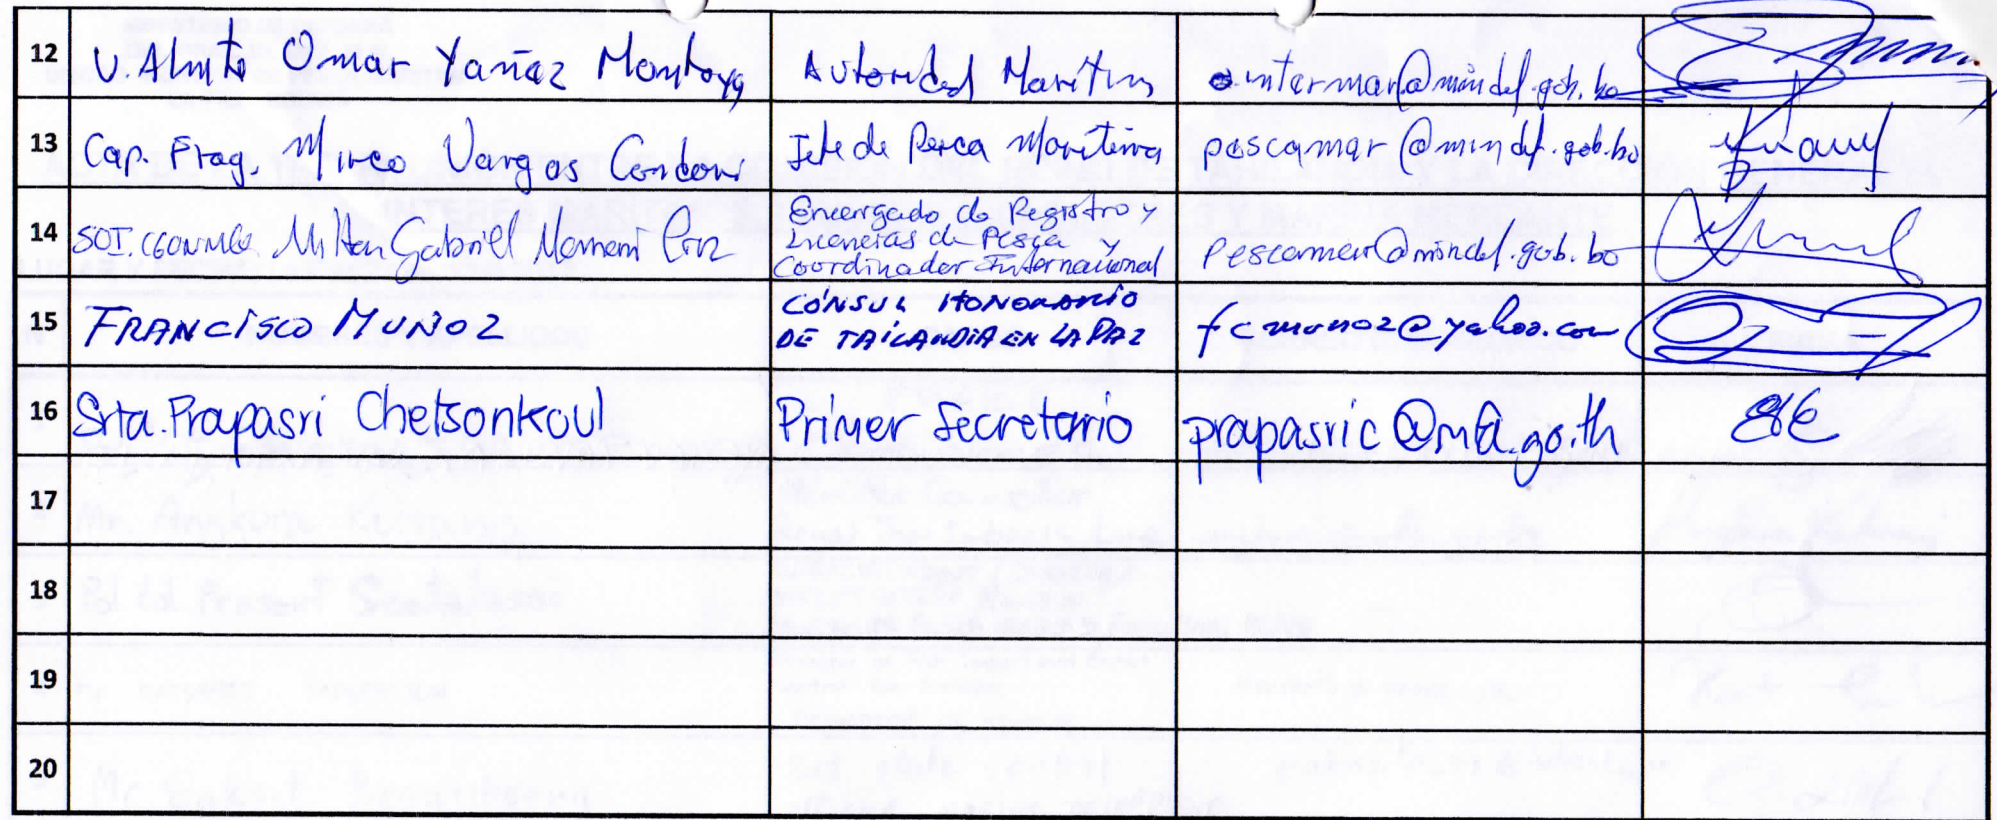 12 V. Almte Omar Yañez Montoya Autoridad Marítima intermar@mindef.gob.bo
13 Cap. Frag. Mirco Vargas Condori Jefe de Pesca Maritima pescamar@mindef.gob.bo
14 SOT. Milton Gabriel Mamani Cruz Encargado de Registro y
Licencias de Pesca y
Coordinador Internacional pescamar@mindef.gob.bo
15 FRANCISCO MUÑOZ CÓNSUL HONORARIO
DE TAILANDIA EN LA PAZ fcmunoz@yahoo.com
16 Srta. Prapasri Chetsonkoul Primer Secretario prapasric@mfa.go.th
17
18
19
20